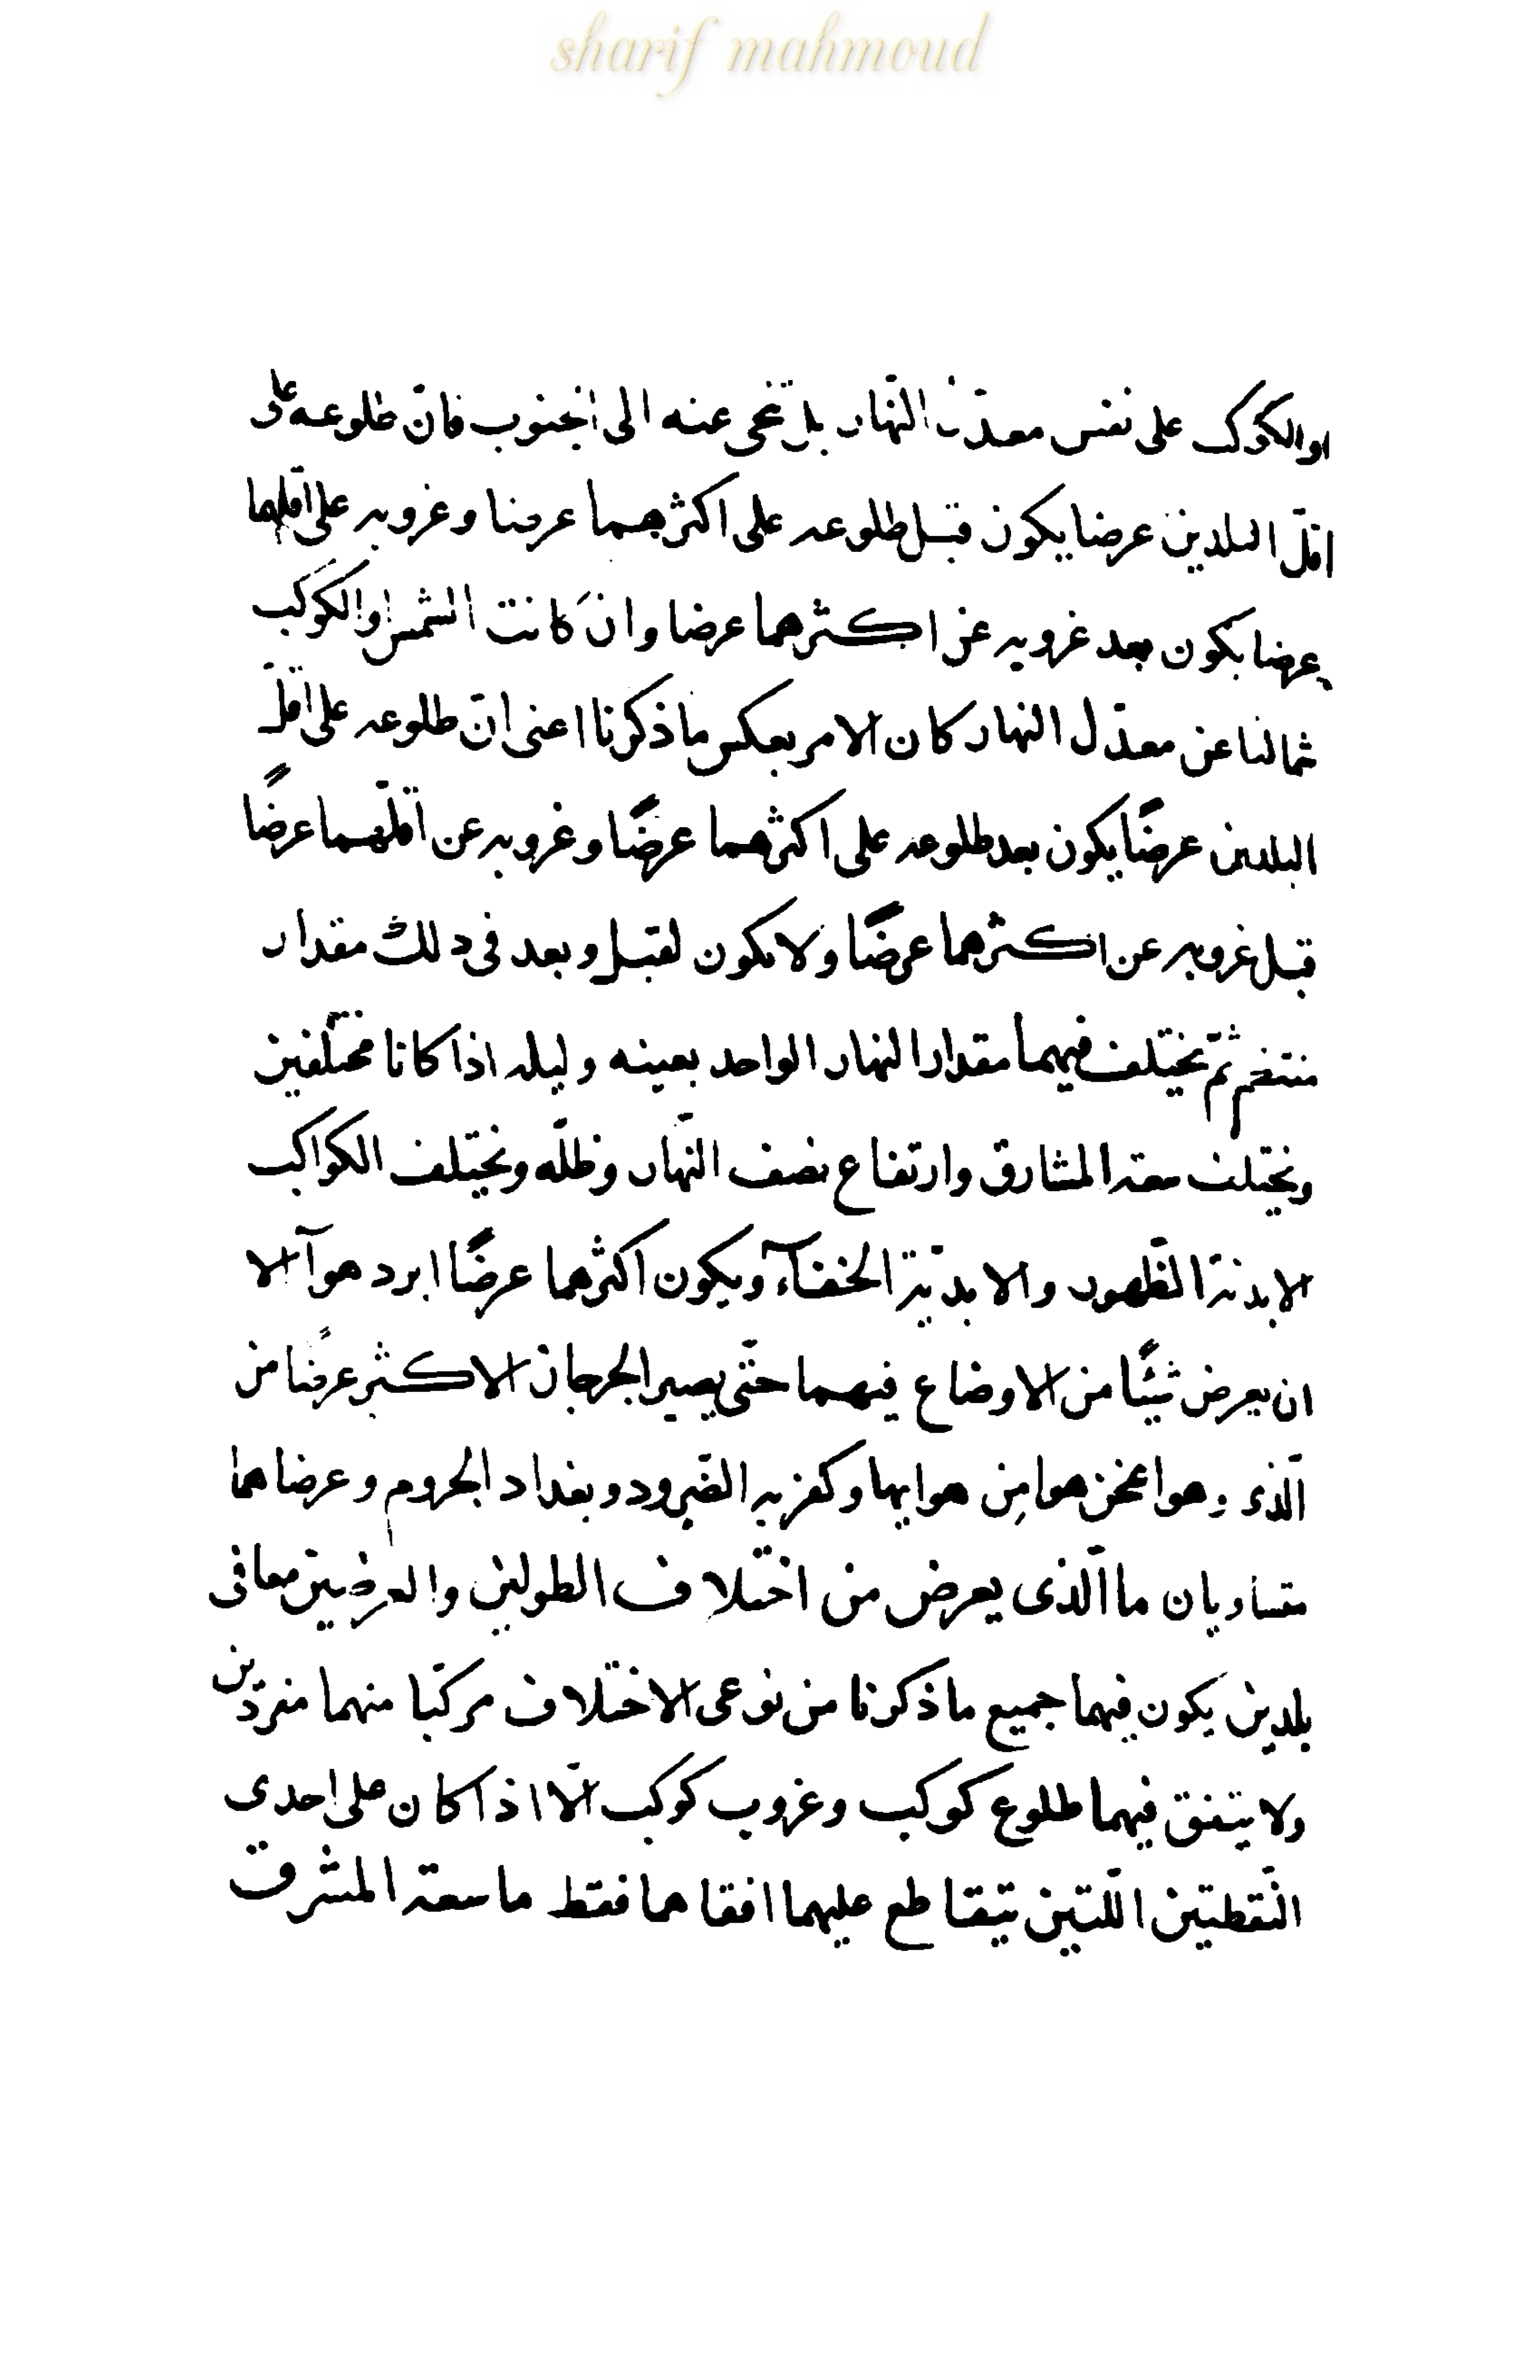 sharif mahmoud
او الكوكب على نفس معدّل النّهار بل تنحى عنه الى الجنوب فانّ طلوعه على
اقلّ البلدين عرضا يكون قبل طلوعه على اكثرهما عرضا وغروبه على اقلهما
عرضا يكون بعد غروبه عن اكثرهما عرضا وان كانت الشمس او الكوكب
شمالنا عن معدّل النهار كان الامر بعكس ما ذكرنا اعنى انّ طلوعه على اقلّ
البلدين عرضًا يكون بعد طلوعه على اكثرهما عرضًا وغروبه عن اقلّهما عرضًا
قبل غروبه عن اكثرهما عرضًا ولا يكون لقبل وبعد فى ذلك مقدار
ثمّ يختلف فيهما مقدار النهار الواحد بعينه وليله اذا كانا مختلفين
ويختلف سعة المشارق وارتفاع نصف النّهار وظلّه ويختلف الكواكب
الابديّة الظّهور والابديّة الخفآء ويكون اكثرهما عرضًا ابرد هوآ الا
ان يعرض شيئًا من الاوضاع فيهما حتّى يصير الجرجان الاكثر عرضًا من
الّذى وهوا من هوايها وكغزنه الصّرود وبغداد الجروم وعرضاهما
متساويان ما الّذى يعرض من اختلاف الطولين والعرضين معا فى
بلدين يكون فيهما جميع ما ذكرنا من نوعى الاختلاف مركّبا منهما منفردين
ولا يتفق فيهما طلوع كوكب وغروب كوكب الّا اذا كان على احدى
النّقطتين اللّتين يتقاطع عليهما افقاهما فقط ما سعة المشرق